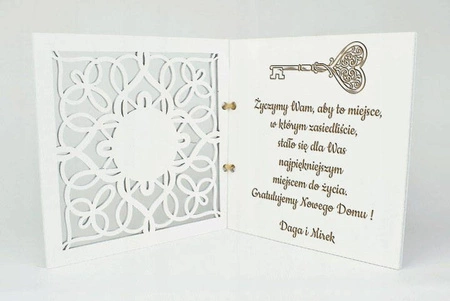 Życzymy Wam, aby to miejsce,
w którym zasiedliście,
stało się dla Was
najpiękniejszym
miejscem do życia.
Gratulujemy Nowego Domu !
Daga i Mirek